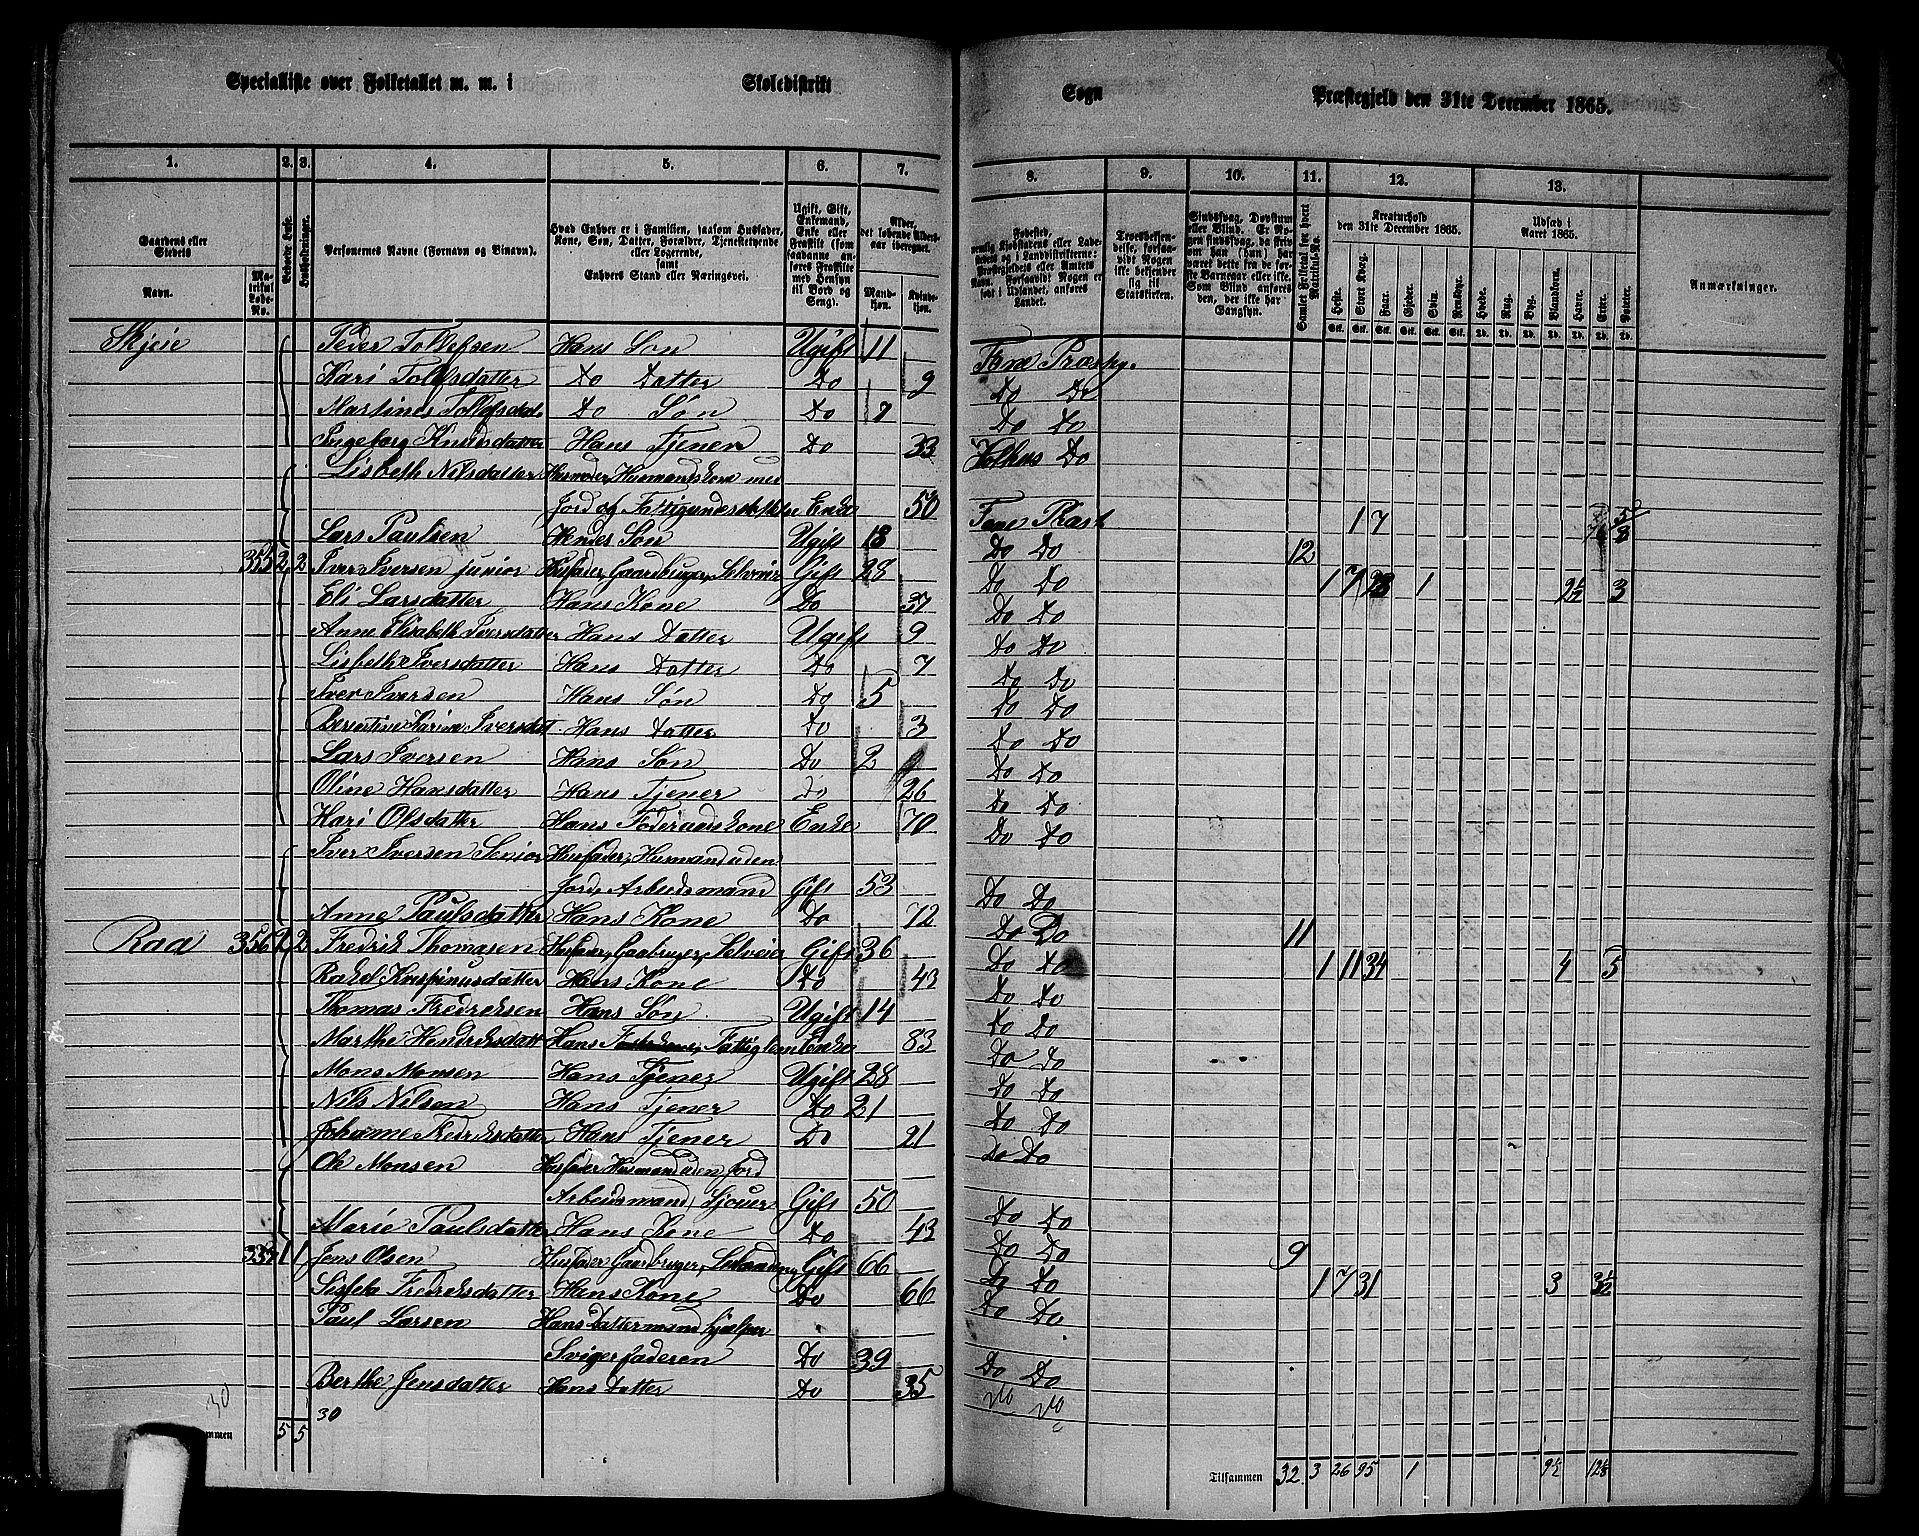 Specialliste over Folketallet m. m. i Skoledistrikt Sogn Præstegjeld den 31te December 1865.
1. 2. 3. 4. 5. 6. 7. 8. 9. 10. 11. 12. 13.
Gaardens eller Stedets Navn. Matrikul Løbe-No. Beboede Huse. Husholdninger. Personernes Navne (Fornavn og Binavn). Hvad Enhver er i Familien, saasom Husfader, Kone, Søn, Datter, Forældre, Tjenestetyende eller Logerende, samt Enhvers Stand eller Næringsvei. Ugift, Gift, Enkemand, Enke eller Fraskilt (som saadanne anføres Fraskilte med Hensyn til Bord og Seng). Alder, det løbende Aldersaar iberegnet. Mandkjøn. Kvindekjøn.
Kreaturhold den 31te December 1865. Udsæd i Aaret 1865. Anmærkninger.
Skjeie Peder Tollefsen Hans Søn Ugift 11 Fane Præstg.
Kari Tollefsdatter Do Datter Do 9 Do Do
Martinus Tollefsdat. Do Søn Do 7 Do Do
Ingeborg Knudsdatter Hans Tjener Do 33 Do
Lisbeth Nilsdatter Husmoder, Husmandskone med
Jord og Fattigunderstøttelse Enke 50 Fane Præst 1 7
Lars Paulsen Hendes Søn Ugift 18 Do Do 12
355 2 2 Iver Iversen junior Husfader, Gaardbruger, Selveier Gift 28 Do Do 1 7 1 2½ 3
Eli Larsdatter Hans Kone Do 37 Do Do
Anne Elisabeth Iversdatter Hans Datter Ugift 9 Do Do
Lisbeth Iversdatter Hans Datter Do 7 Do Do
Iver Iversen Hans Søn Do 5 Do Do
Berentine Karine Iversdatt. Hans Datter Do 3 Do Do
Lars Iversen Hans Søn Do 2 Do Do
Oline Hansdatter Hans Tjener Do 26 Do Do
Kari Olsdatter Hans Føderaadskone Enke 70 Do Do
Iver Iversen Senior Husfader, Husmand uden
Jord, Arbeidsmand Gift 53 Do Do
Anne Paulsdatter Hans Kone Do 72 Do Do 11
Raa 356 2 2 Fredrik Thomasen Husfader, Gaabruger, Selveier Gift 36 Do Do 1 11 34 4 5
Rakel Krispinusdatter Hans Kone Do 43 Do Do
Thomas Fredriksen Hans Søn Ugift 14 Do Do
Marthe Hendriksdatt Hans Fattiglem Enke 83 Do Do
Mons Monsen Hans Tjener Ugift 28 Do Do
Nils Nilsen Hans Tjener Do 21 Do Do
Johanne Fredriksdatter Hans Tjener Do 21 Do Do
Ole Monsen Husfader Husmand uden Jord
Arbeidsmand, Gift 50 Do Do
Marie Paulsdatter Hans Kone Do 43 Do Do 9
1 1 Jens Olsen Husfader Gaardbruger, Gift 66 Do Do 1 7 31 3 3½
Fredriksdatter Hans Kone Do 66 Do Do
Paul Larsen Hans Dattermand hjælper
Svigerfaderen Do 39 Do Do
Berthe Jensdatter Hans Datter Do 35 Do Do
30 30
5 5 Tilsammen 32 3 26 95 1 9½